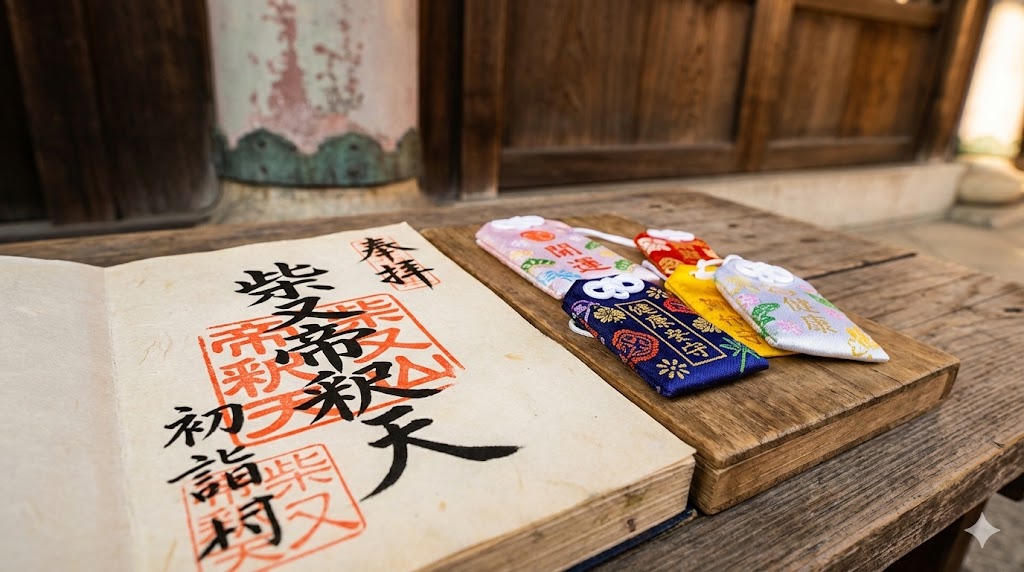 奉拝
柴又帝釈天
柴又山
帝釈天
初詣村
柴又
開運
健康
健康